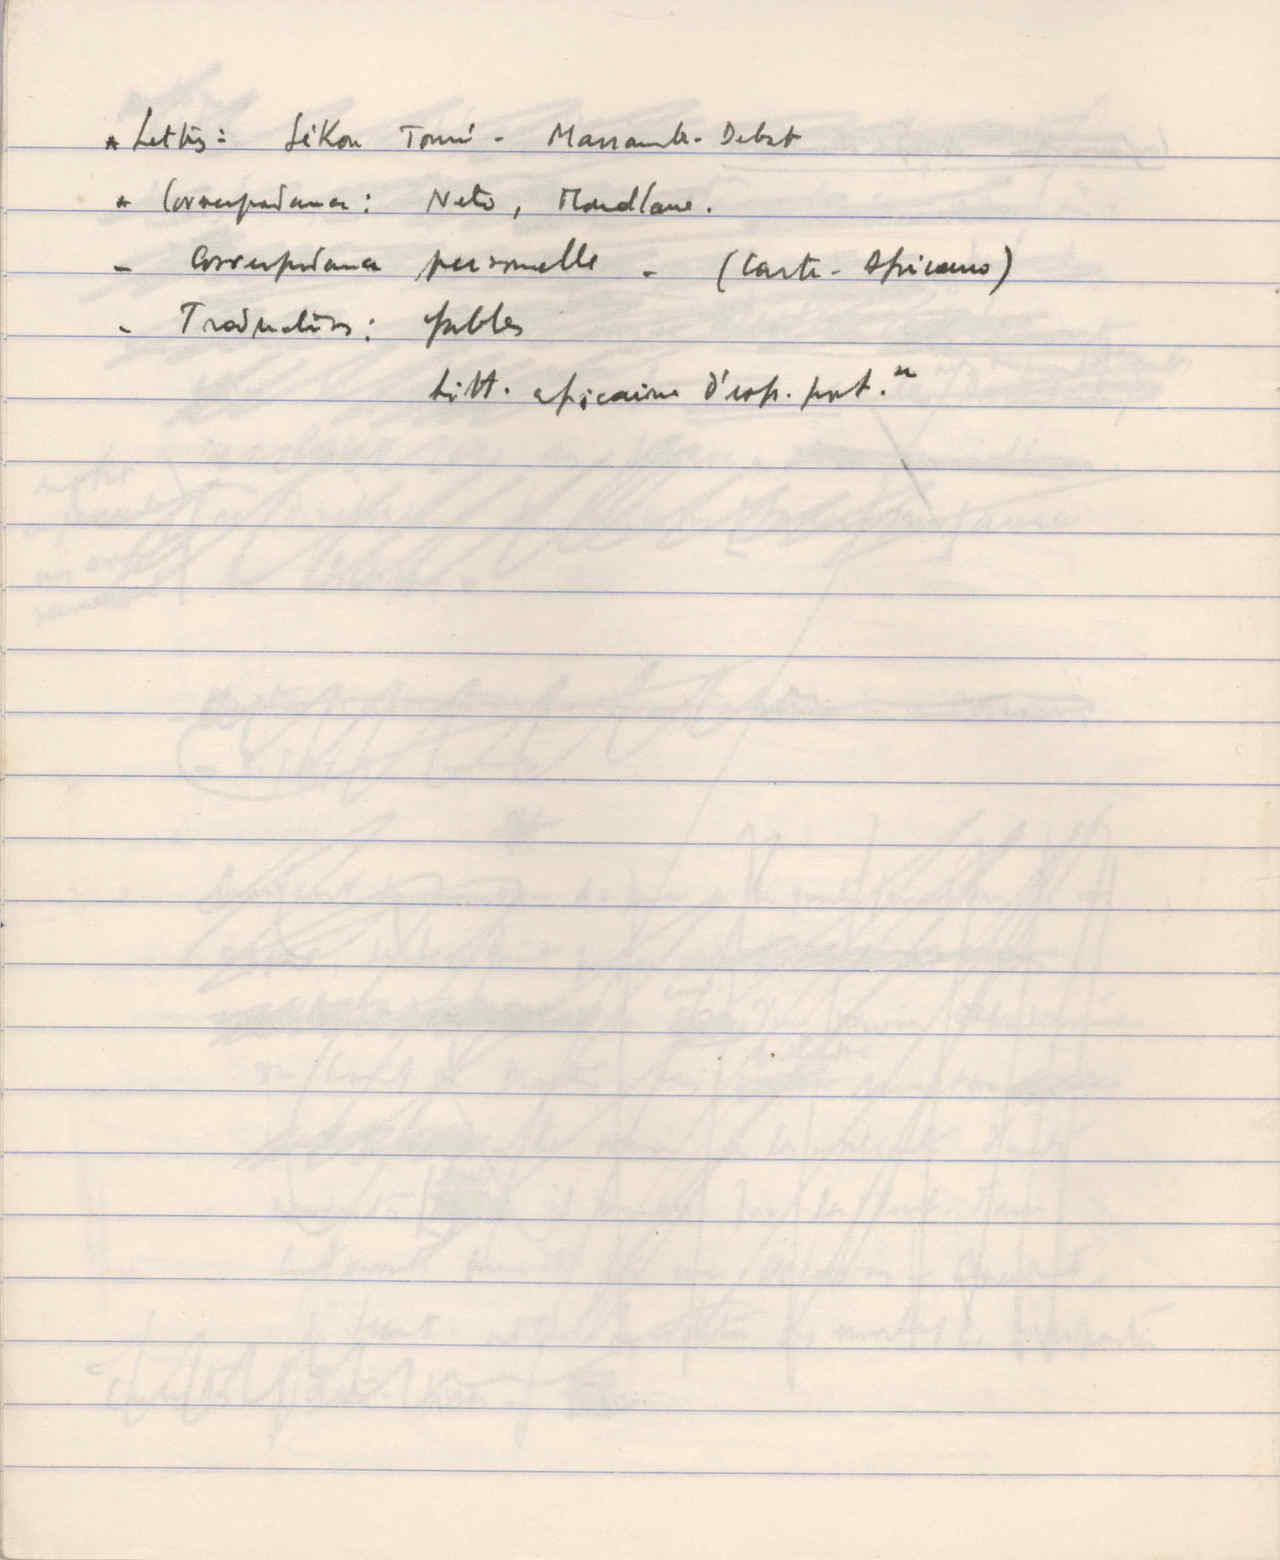 * Lettres: Sékou Touré - Massamba-Debat
* Correspondance: Neto, Mondlane.
- Correspondance personnelle - (Carte - Africano)
- Traductions: fables
Litt. africaine d'exp. port."